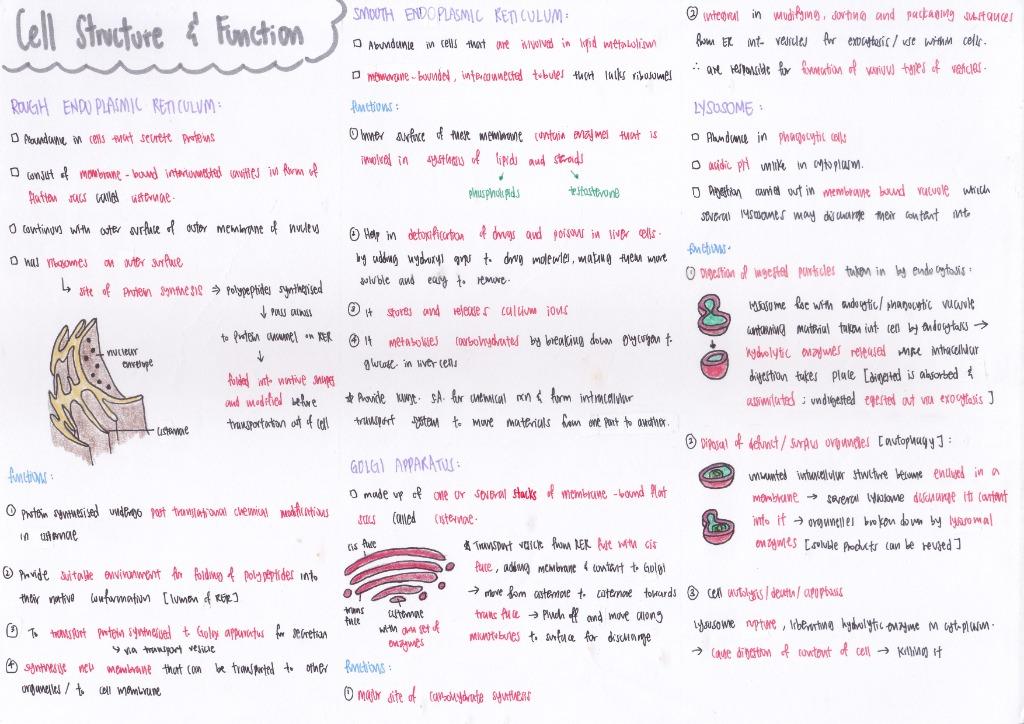 Cell Structure & Function
ROUGH ENDOPLASMIC RETICULUM:
□ Abundance in cells that secrete proteins
□ consist of membrane-bound interconnected cavities in form of
flatten sacs called cisternae.
□ continuous with outer surface of outer membrane of nucleus
□ has ribosomes on outer surface
↳ site of protein synthesis ⇒ polypeptides synthesised
↓ pass across
to protein channel on RER
↓
folded into native shapes
and modified before
transportation out of cell
nuclear
envelope
cisternae
functions:
① Protein synthesised undergo post translational chemical modifications
in cisternae
② Provide suitable environment for folding of polypeptides into
their native conformation [lumen of RER]
③ To transport protein synthesised to Golgi apparatus for secretion
↳ via transport vesicle
④ synthesise new membrane that can be transported to other
organelles/ to cell membrane
SMOOTH ENDOPLASMIC RETICULUM:
□ Abundance in cells that are involved in lipid metabolism
□ membrane-bounded, interconnected tubules that lacks ribosomes
functions:
① Inner surface of these membrane contain enzymes that is
involved in synthesis of lipids and steroids
phospholipids testosterone
② Help in detoxification of drugs and poisons in liver cells.
by adding hydroxyl grps to drug molecules, making them more
soluble and easy to remove.
③ It stores and releases calcium ions
④ It metabolises carbohydrated by breaking down glycogen t.
glucose. in liver cells
★ Provide large. S.A. for chemical rxn & form intracellular
transport system to move materials from one part to another.
GOLGI APPARATUS:
□ made up of one or several stacks of membrane-bound flat
sacs called cisternae.
cis face
trans
face
cisternae
with own set of
enzymes
★ Transport vesicle from RER fuse with cis
face, adding membrane & content to Golgi
→ move from cisternae to cisternae towards
trans face → Pinch off and move along
microtubules to surface for discharge
functions:
① major site of carbohydrate synthesis
② integral in modifying, sorting and packaging substances
from ER int. vesicles for exocytosis/ use within cells.
∴ are responsible for formation of various types of vesicles.
LYSOSOME:
□ Abundance in phagocytic cells
□ acidic pH unlike in cytoplasm.
□ Digestion carried out in membrane bound vacuole which
several lysosomes may discharge their content into
functions:
① Digestion of ingested particles taken in by endocytosis:
lysosome fuse with endocytic/ phagocytic vacuole
containing material taken int. cell by endocytosis →
hydrolytic enzymes released where intracellular
digestion takes place [digested is absorbed &
assimilated ; undigested egested out via exocytosis]
② Diposal of defunct/ surplus organelles [autophagy]:
unwanted intracellular structure become enclosed in a
membrane → several lysosome discharge its content
into it → organelles broken down by lysosomal
enzymes [soluble products can be reused]
③ Cell autolysis/death/ apoptosis
lysosome rupture, liberating hydrolytic enzyme in cytoplasm.
→ cause digestion of content of cell → killing it